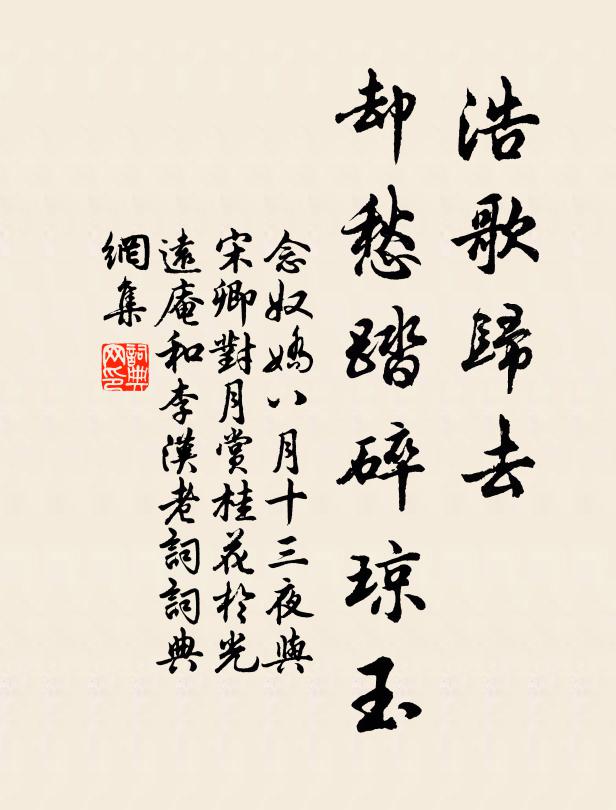 浩歌歸去
却愁踏碎琼玉
念奴嬌八月十三夜與
宋卿對月賞桂花於光
遠庵和李漢老詞詞典
網集
詞典
网印